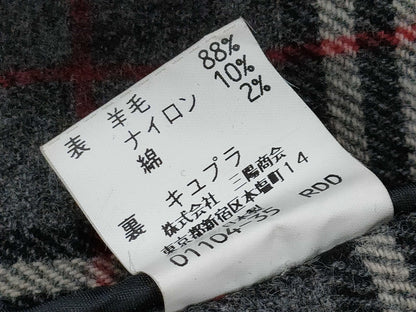 表 羊毛 88%
ナイロン 10%
綿 2%
裏 キュプラ
株式会社 三陽商会
東京都新宿区本塩町14
01104-35 RDD